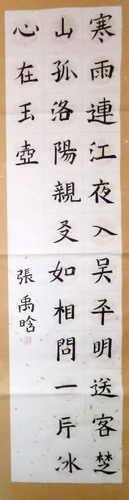 寒雨連江夜入吳平明送客楚
山孤洛陽親友如相問一片冰
心在玉壺
張禹晗